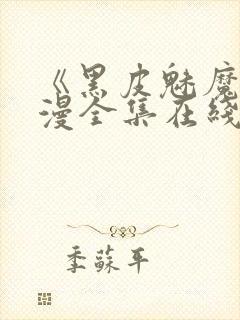 《黑皮魅魔
漫全集在线
季蘇平